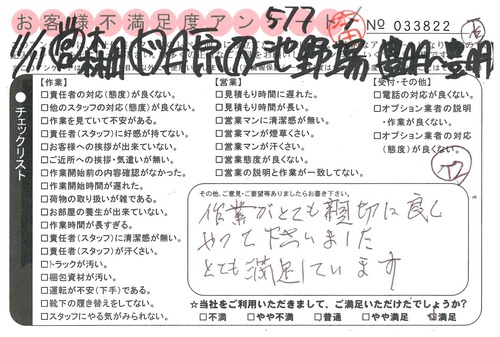 お客様不満足度アンケート
577
No 033822
【作業】
□責任者の対応(態度)が良くない。
□他のスタッフの対応(態度)が良くない。
□作業を見ていて不安がある。
□責任者(スタッフ)に好感が持てない。
□お客様への挨拶が出来ていない。
□ご近所への挨拶・気遣いが無い。
□作業開始前の内容確認がなかった。
□作業開始時間が遅れた。
□荷物の取り扱いが雑である。
□お部屋の養生が出来ていない。
□作業時間が長すぎる。
□責任者(スタッフ)に清潔感が無い。
□責任者(スタッフ)が汗くさい。
□トラックが汚い。
□梱包資材が汚い。
□運転が不安(下手)である。
□靴下の履き替えをしてない。
□スタッフにやる気がみられない。
【営業】
□見積もり時間に遅れた。
□見積もり時間が長い。
□営業マンに清潔感が無い。
□営業マンが煙草くさい。
□営業マンが汗くさい。
□営業態度が良くない。
□営業の説明と作業が一致してない。
【受付・その他】
□電話の対応が良くない。
□オプション業者の説明
・作業が良くない。
□オプション業者の対応
(態度)が良くない。
チェックリスト
その他、ご意見・ご要望等ありましたらお書き下さい。
作業がとても親切に良く
やって下さいました
とても満足しています
☆当社をご利用いただきまして、ご満足いただけたでしょうか?
□不満 □やや不満 □普通 □やや満足 ☑満足